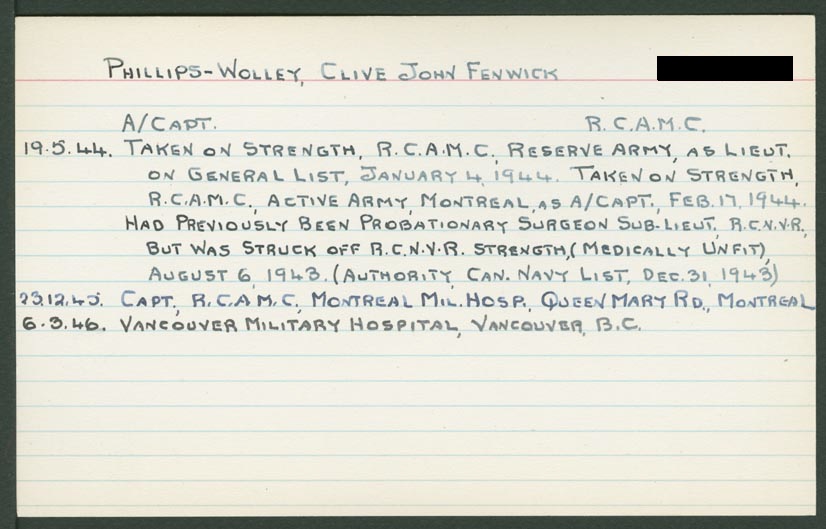 PHILLIPS-WOLLEY, CLIVE JOHN FENWICK
A/CAPT. R.C.A.M.C.
19.5.44. TAKEN ON STRENGTH, R.C.A.M.C. RESERVE ARMY, AS LIEUT.
ON GENERAL LIST, JANUARY 4, 1944. TAKEN ON STRENGTH,
R.C.A.M.C., ACTIVE ARMY, MONTREAL, AS A/CAPT., FEB. 17, 1944.
HAD PREVIOUSLY BEEN PROBATIONARY SURGEON SUB-LIEUT, R.C.N.V.R.,
BUT WAS STRUCK OFF R.C.N.V.R. STRENGTH, (MEDICALLY UNFIT),
AUGUST 6, 1943. (AUTHORITY, CAN. NAVY LIST, DEC. 31, 1943)
23.12.45. CAPT, R.C.A.M.C, MONTREAL MIL. HOSP., QUEEN MARY RD., MONTREAL
6.3.46. VANCOUVER MILITARY HOSPITAL, VANCOUVER, B.C.